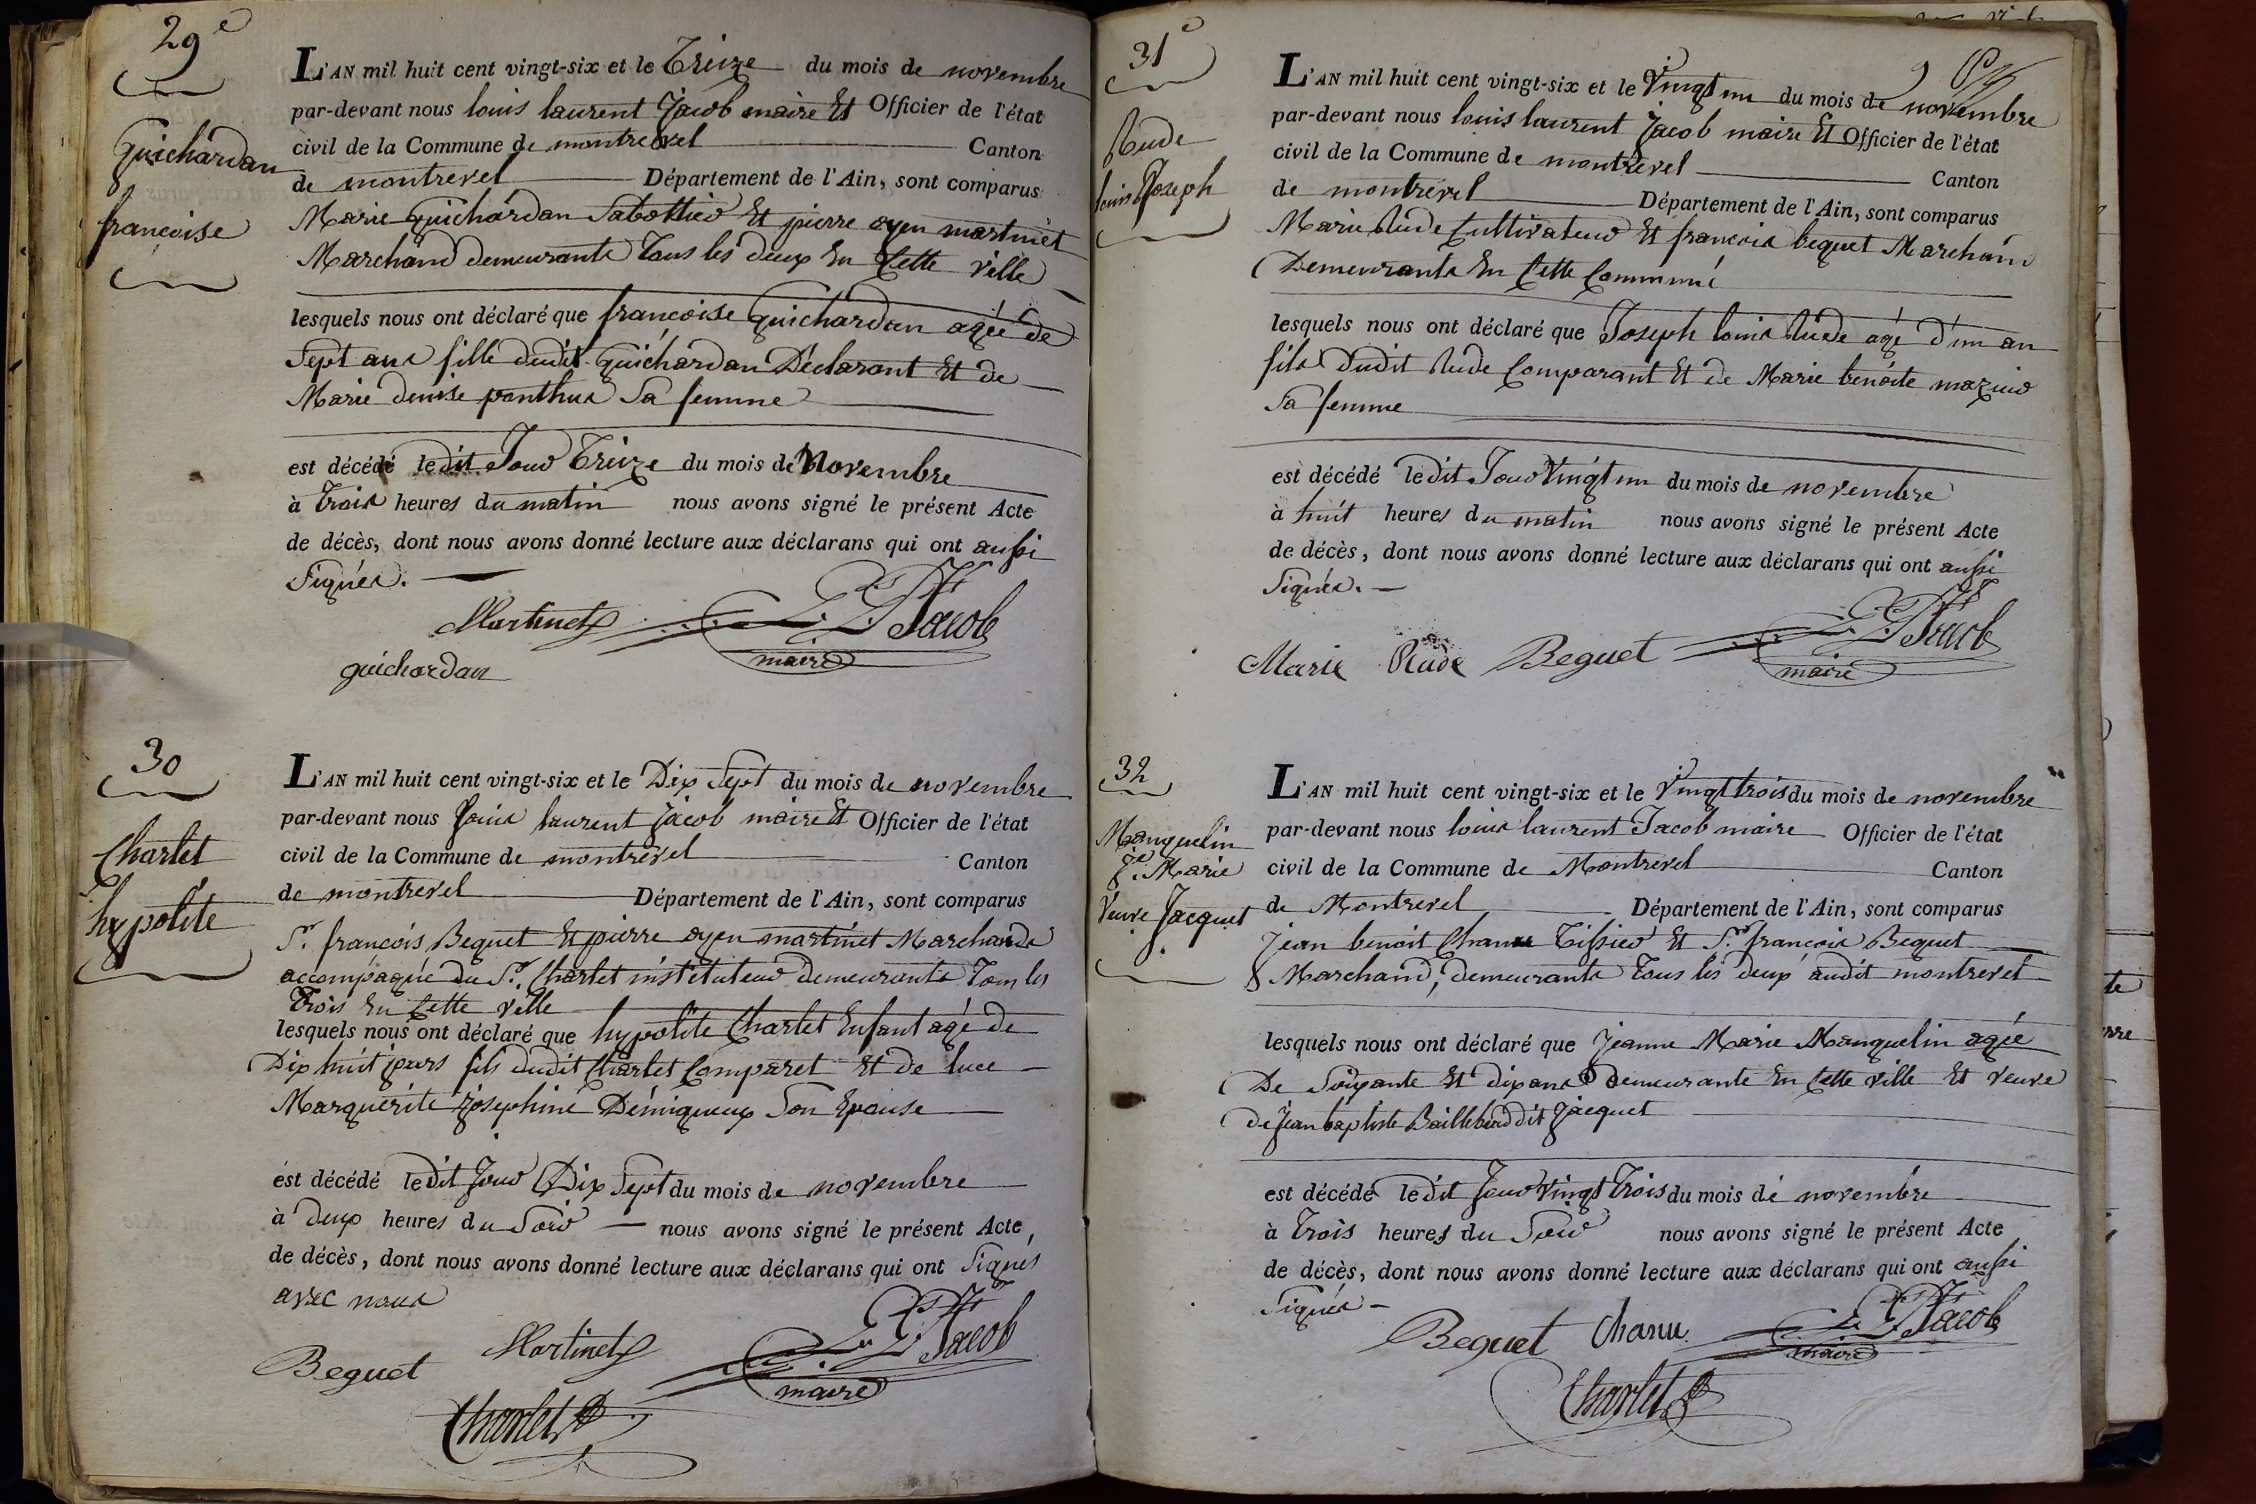 29e
Guichardan
francoise
L'AN mil huit cent vingt-six et le Treize du mois de novembre
par-devant nous louis laurent Jacob maire Et Officier de l'état
civil de la Commune de montrevel Canton
de montrevel Département de l'Ain, sont comparus
Marie Guichardan Sabottier Et pierre oyen martinet
Marchand demeurants Tous les deux En Cette ville
lesquels nous ont déclaré que francoise Guichardan agée de
Sept ans fille dudit Guichardan Déclarant Et de
Marie denise ponthus Sa femme
est décédé ledit Jour Treize du mois de Novembre
à Trois heures du matin nous avons signé le présent Acte
de décès, dont nous avons donné lecture aux déclarans qui ont aussi
Signés.
Martinet L. L. Jacob
maire
guichardan
30
Charlet
hypolite
L'AN mil huit cent vingt-six et le Dix Sept du mois de novembre
par-devant nous Louis laurent Jacob maire Et Officier de l'état
civil de la Commune de montrevel Canton
de montrevel Département de l'Ain, sont comparus
Sr. francois Beguet Et pierre oyen martinet Marchands
accompagné du Sr. Charlet instituteur demeurants Tous les
Trois En Cette ville
lesquels nous ont déclaré que hypolite Charlet Enfant agé de
Dix huit jours fils dudit Charlet Comparet Et de luce
Marguerite Josephine Démigneux Son Epouse
est décédé ledit Jour Dix Sept du mois de novembre
à deux heures du Soir nous avons signé le présent Acte
de décès, dont nous avons donné lecture aux déclarans qui ont Signés
avec nous
Martinet L. L. Jacob
Beguet maire
Charlet
31e
Rude
louis Joseph
L'AN mil huit cent vingt-six et le Vingt un du mois de novembre
par-devant nous louis laurent Jacob maire Et Officier de l'état
civil de la Commune de montrevel Canton
de montrevel Département de l'Ain, sont comparus
Marie Rude Cultivateur Et francois beguet Marchand
Demeurants En Cette Commune
lesquels nous ont déclaré que Joseph louis Rude agé d'un an
fils Dudit Rude Comparant Et de Marie benoite mazuir
Sa femme
est décédé ledit Jour Vingt un du mois de novembre
à huit heures du matin nous avons signé le présent Acte
de décès, dont nous avons donné lecture aux déclarans qui ont aussi
Signés.
Marie Rude Beguet L. L. Jacob
maire
32
Manguelin
Je. Marie
Veuve Jacquet
L'AN mil huit cent vingt-six et le Vingt trois du mois de novembre
par-devant nous louis laurent Jacob maire Officier de l'état
civil de la Commune de Montrevel Canton
de Montrevel Département de l'Ain, sont comparus
Jean benoit Chanu Tissier Et Sr. francois Beguet
Marchand, demeurants Tous les deux audit montrevel
lesquels nous ont déclaré que Jeanne Marie Manguelin agée
De Soixante Et dix ans demeurante En Cette ville Et veuve
de Jean baptiste dit Jacquet
est décédé ledit Jour Vingt Trois du mois de novembre
à Trois heures du Soir nous avons signé le présent Acte
de décès, dont nous avons donné lecture aux déclarans qui ont aussi
Signés
Beguet Chanu L. L. Jacob
maire
Charlet